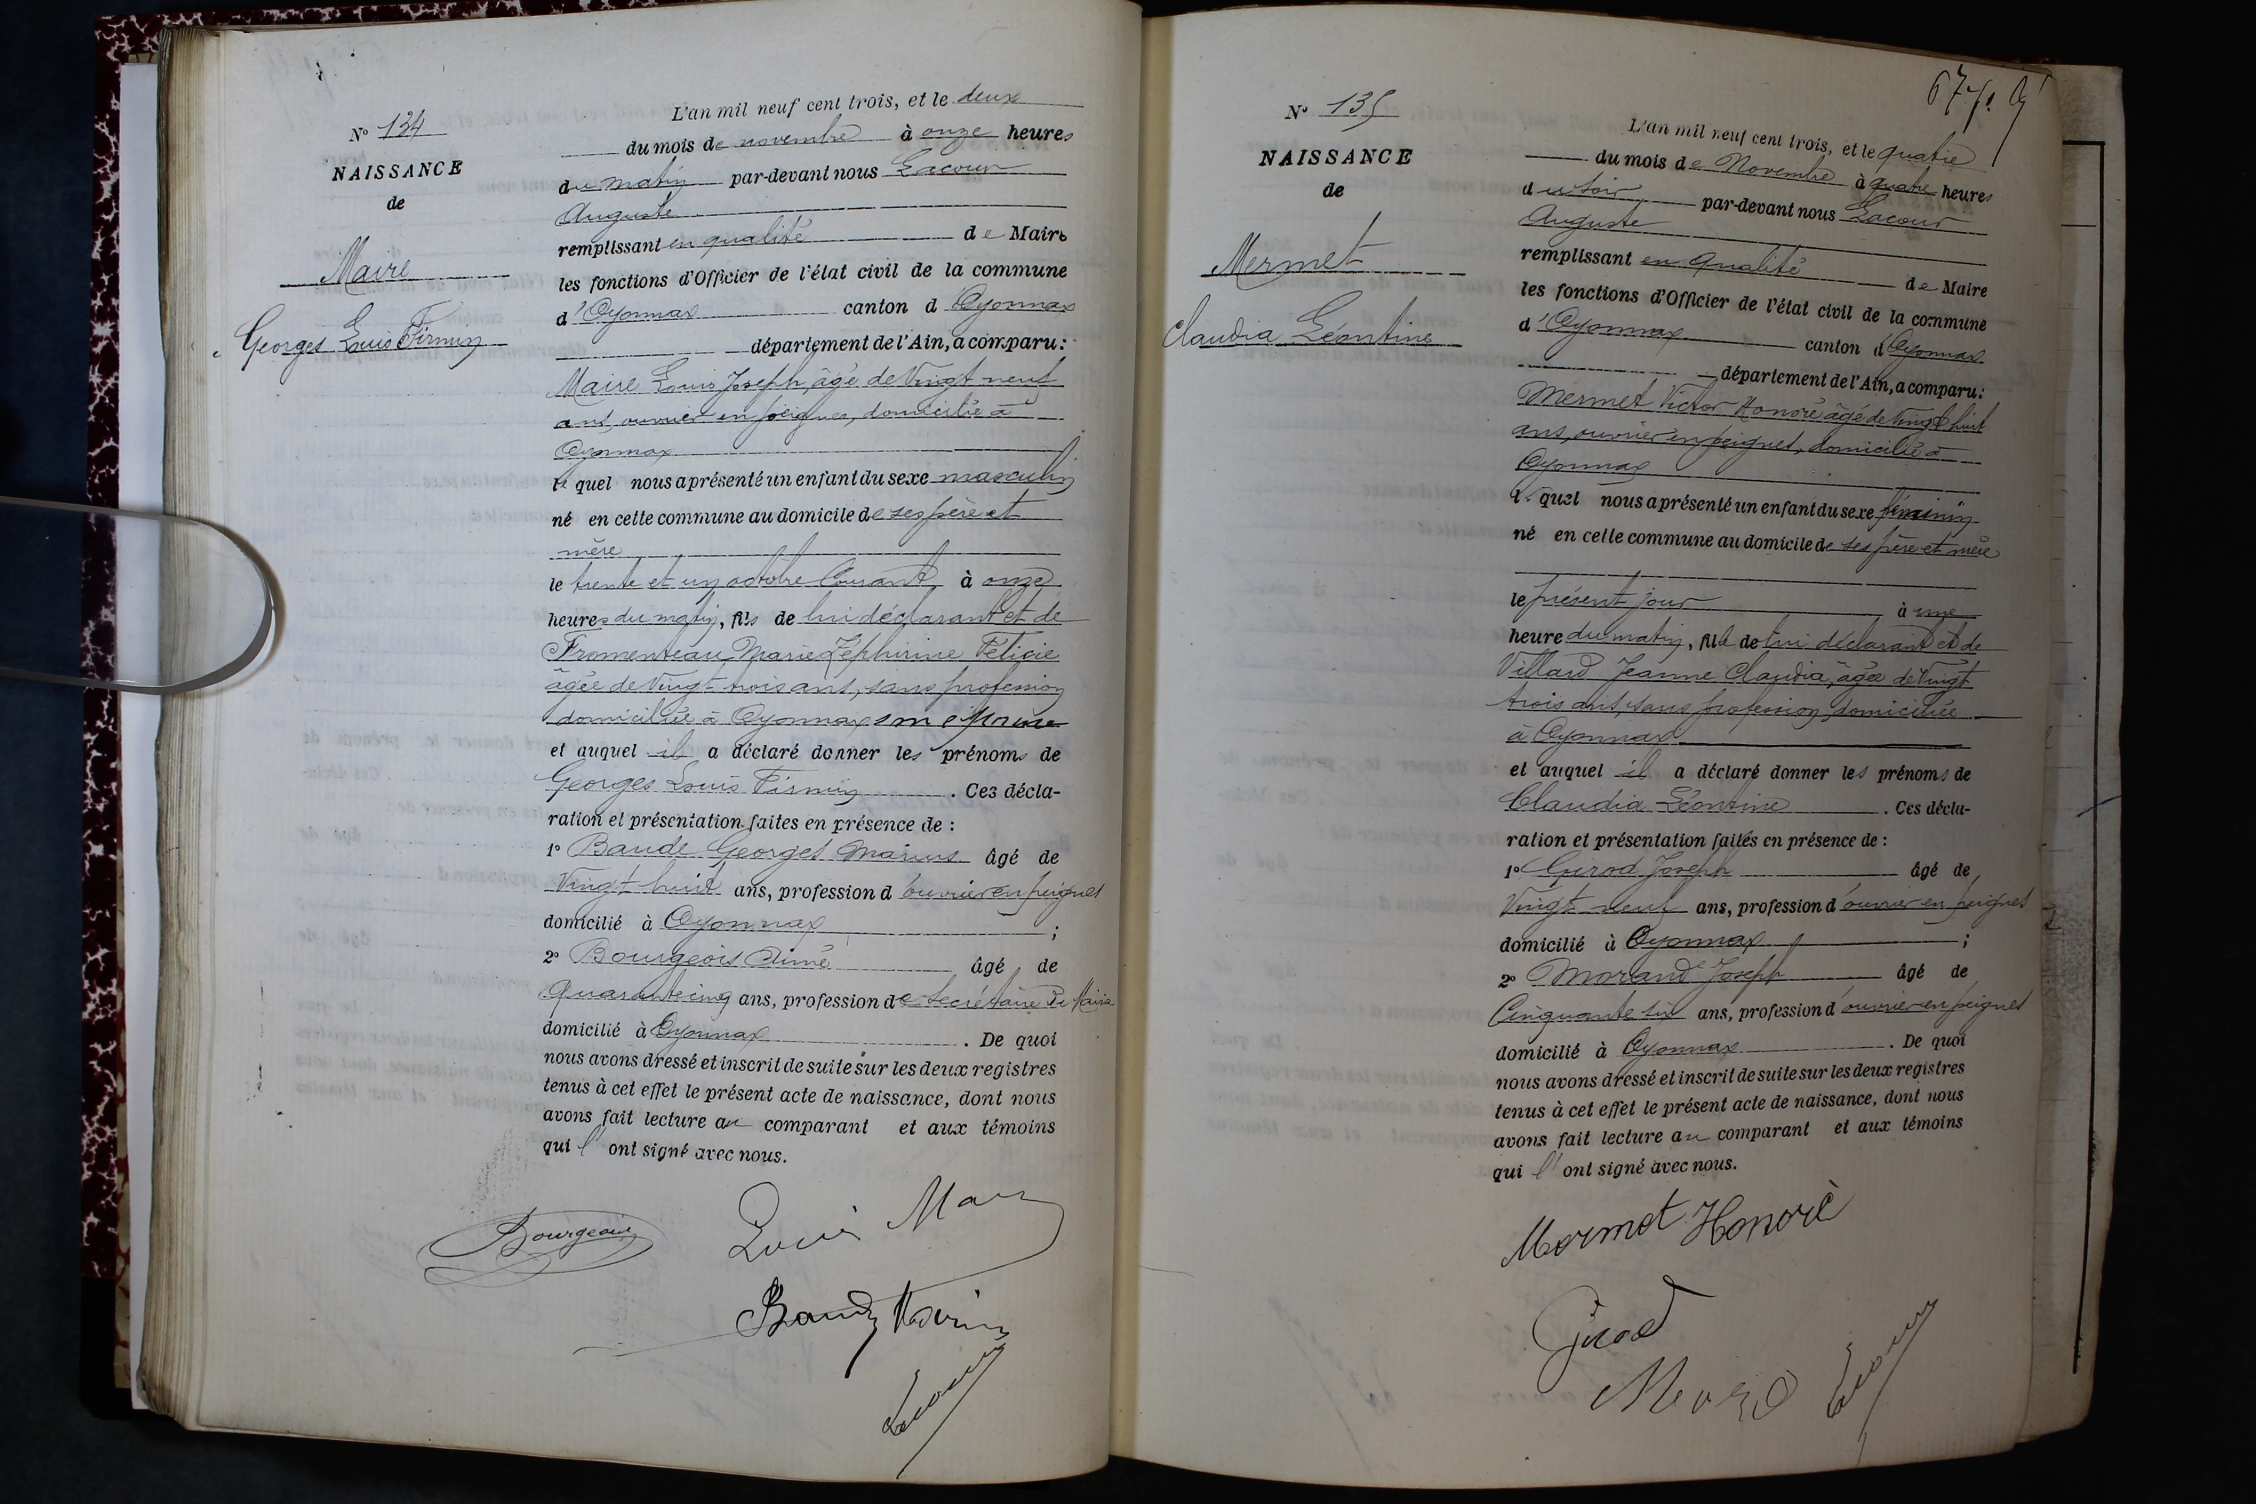 N° 134
NAISSANCE
de
Maire
Georges Louis Firmin
L'an mil neuf cent trois, et le deux
du mois de novembre à onze heures
du matin par-devant nous Lacour
Auguste
remplissant en qualité de Maire
les fonctions d'Officier de l'état civil de la commune
d'Oyonnax canton d'Oyonnax
département de l'Ain, a comparu :
Maire Louis Joseph, âgé de Vingt neuf
ans, ouvrier en peignes, domicilié à
Oyonnax
le quel nous a présenté un enfant du sexe masculin
né en cette commune au domicile de ses père et
mère
le trente et un octobre Courant à onze
heures du matin, fils de lui déclarant et de
Fromenteau Marie Zéphirine Félicie
âgée de Vingt-trois ans, sans profession
domiciliée à Oyonnax son épouse
et auquel il a déclaré donner les prénoms de
Georges Louis Firmin . Ces décla-
ration et présentation faites en présence de :
1° Baude Georges Marius âgé de
Vingt huit ans, profession d'ouvrier en peignes
domicilié à Oyonnax ;
2° Bourgeois Aimé âgé de
Quarante cinq ans, profession de Secrétaire de Mairie
domicilié à Oyonnax . De quoi
nous avons dressé et inscrit de suite sur les deux registres
tenus à cet effet le présent acte de naissance, dont nous
avons fait lecture au comparant et aux témoins
qui l' ont signé avec nous.
Bourgeois
Louis Maire
Baude Marius
Lacour
67
N° 135
NAISSANCE
de
Mermet
Claudia Léontine
L'an mil neuf cent trois, et le quatre
du mois de Novembre à quatre heures
du soir par-devant nous Lacour
Auguste
remplissant en qualité de Maire
les fonctions d'Officier de l'état civil de la commune
d'Oyonnax canton d'Oyonnax
département de l'Ain, a comparu :
Mermet Victor Honoré âgé de Vingt huit
ans, ouvrier en peignes, domicilié à
Oyonnax
le quel nous a présenté un enfant du sexe féminin
né en cette commune au domicile de ses père et mère
le présent jour à une
heure du matin, fille de lui déclarant et de
Villard Jeanne Claudia, âgée de Vingt
trois ans, sans profession, domiciliée
à Oyonnax
et auquel il a déclaré donner les prénoms de
Claudia Léontine . Ces décla-
ration et présentation faites en présence de :
1° Girod Joseph âgé de
Vingt neuf ans, profession d'ouvrier en peignes
domicilié à Oyonnax ;
2° Morand Joseph âgé de
Cinquante six ans, profession d'ouvrier en peignes
domicilié à Oyonnax . De quoi
nous avons dressé et inscrit de suite sur les deux registres
tenus à cet effet le présent acte de naissance, dont nous
avons fait lecture au comparant et aux témoins
qui l' ont signé avec nous.
Mermet Honoré
Girod
Lacour